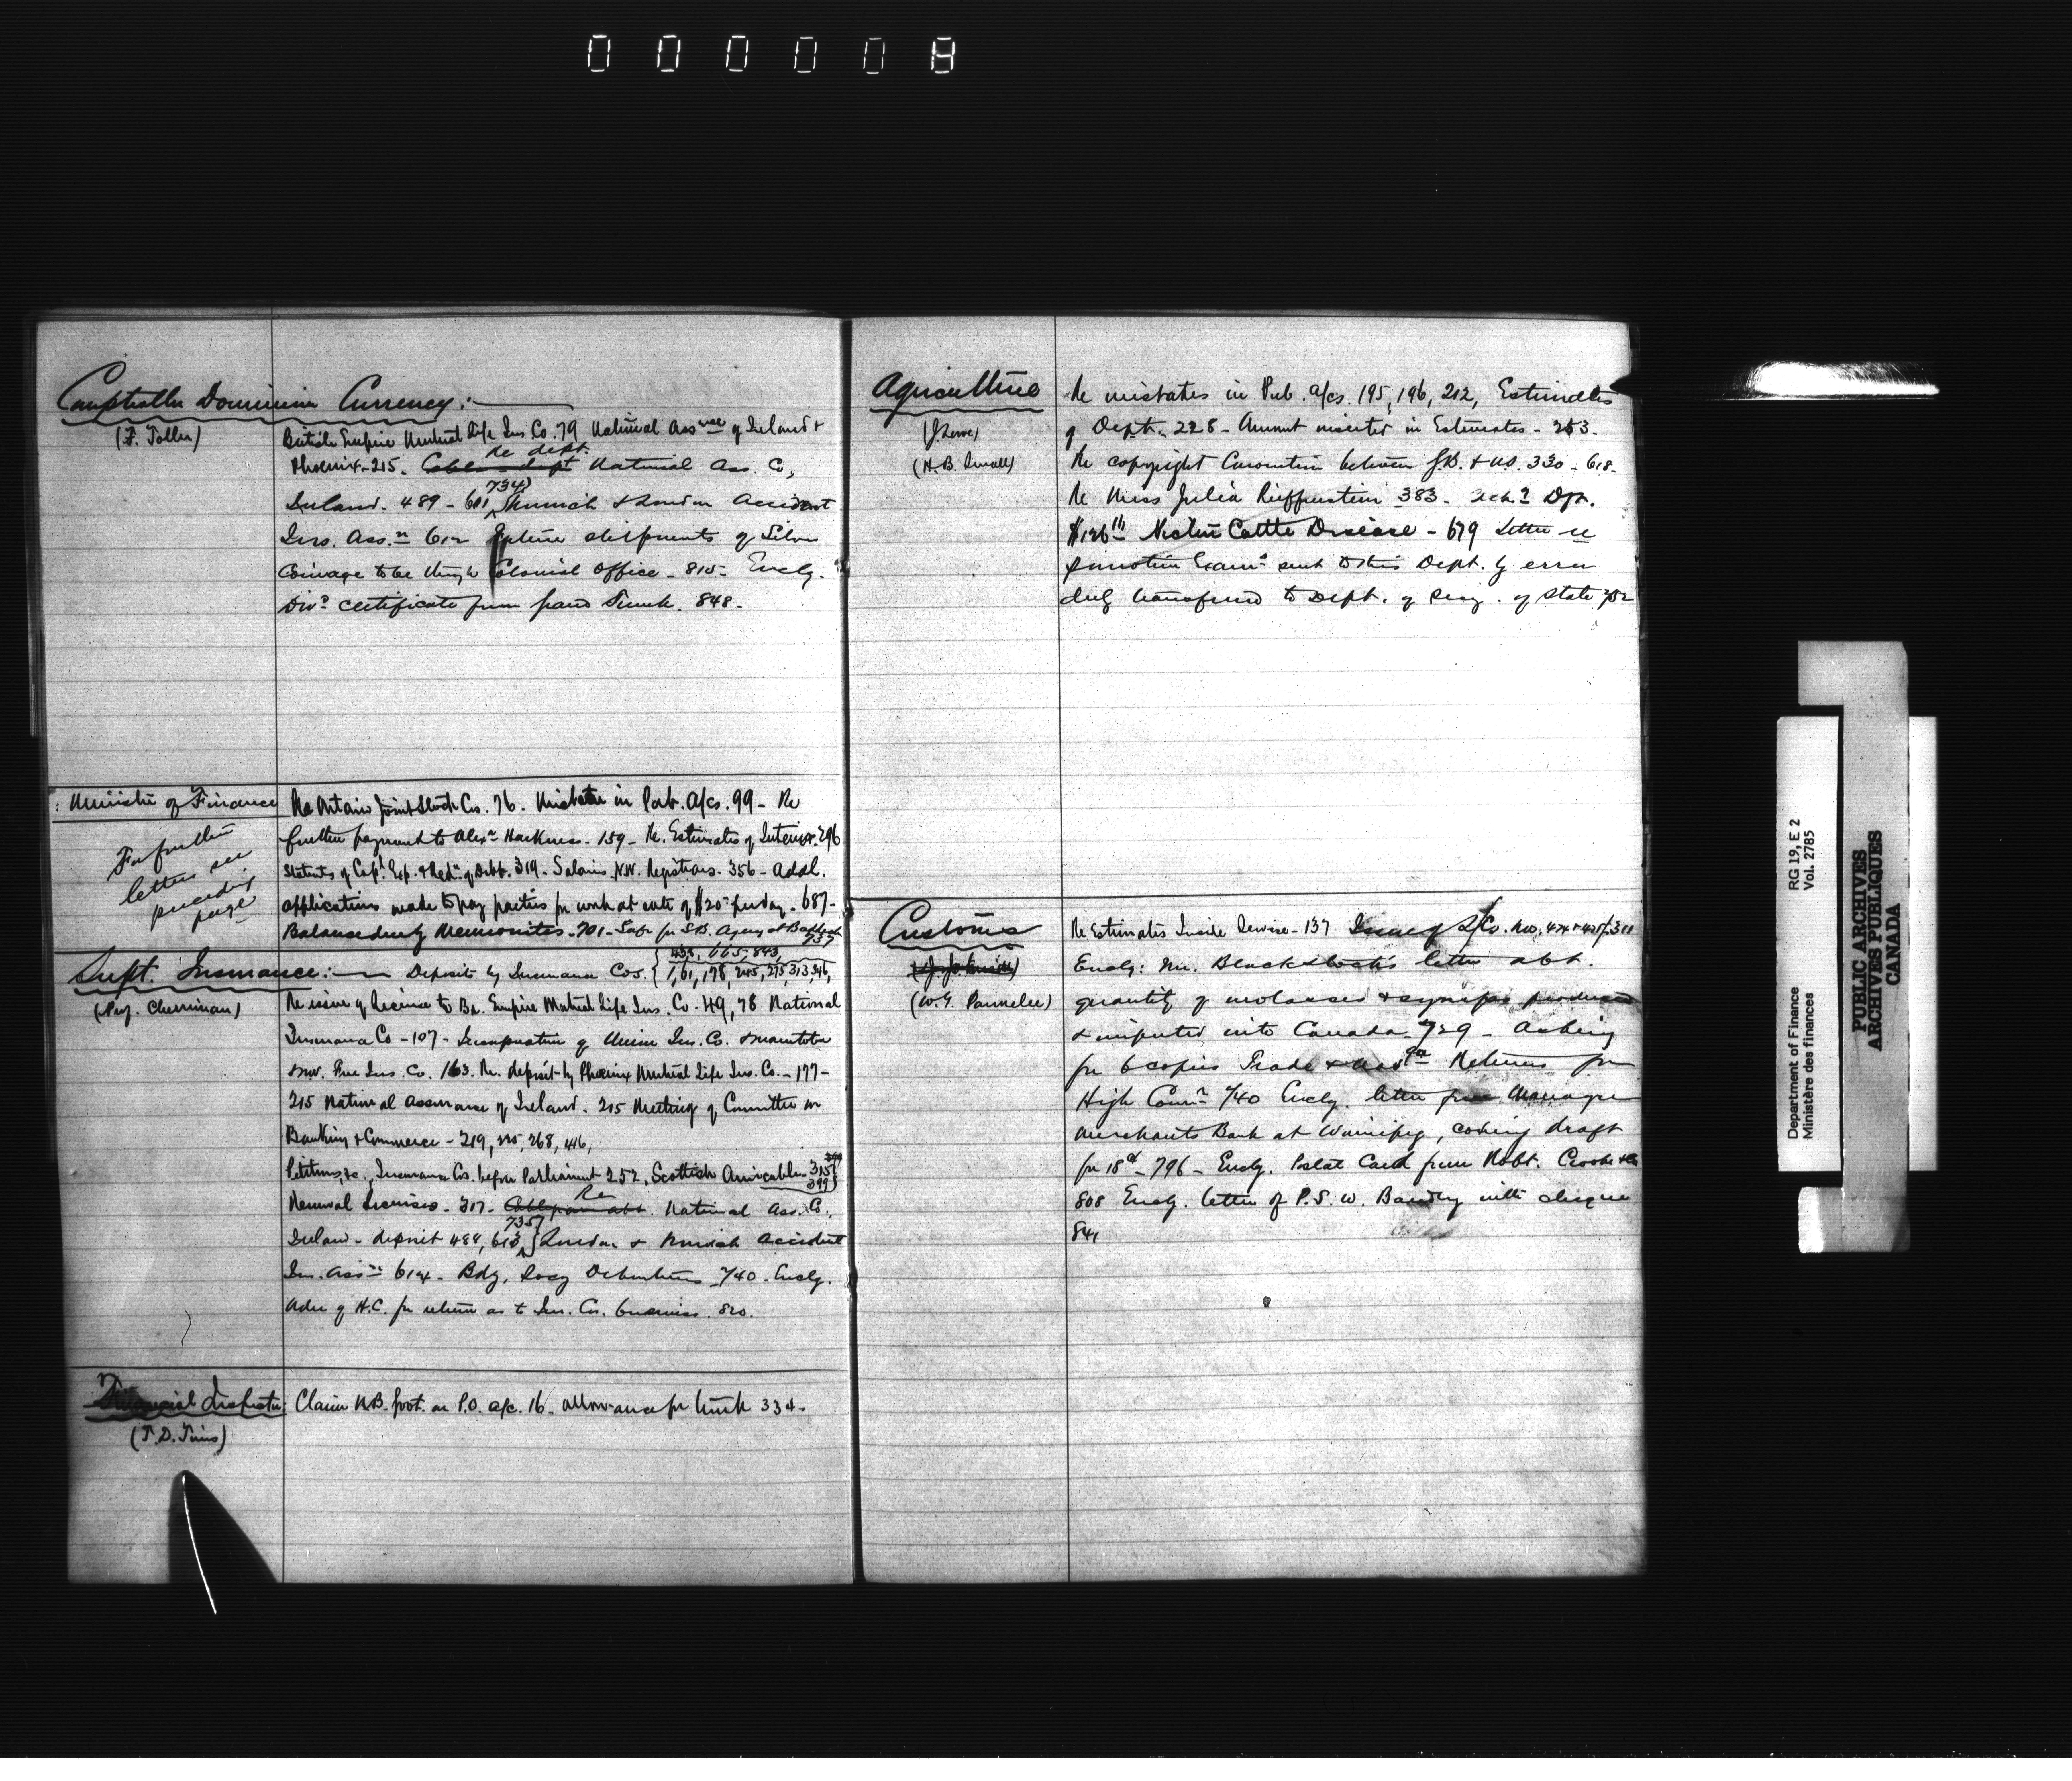 000008
Comptroller Dominion Currency:
(F. Toller)
British Empire Mutual Life Ins Co. 79 National Assnce of Ireland &
Re dept.
Phoenix - 215. National Ass. Co,
734
Ireland. 489 - 601 Norwich & London Accident
Ins. Ass.n 612 Future shipments of Silver
Coinage to be through Colonial Office - 815 - Enclg.
Divd certificate from Grand Trunk. 848 -
Minister of Finance
For further
letters see
preceding
page
Re Ontario Joint Stock Co. 76 - Mistake in Pub. a/cs. 99 - Re
further payment to Alexr Harkness - 159 - Re. Estimates of Interior. 296
Statents of Capl Exp. & Redn of Debt. 319 - Salaries N.W. Registrars. 356 - Addl.
applications made to pay parties for work at rate of $20 - per day - 687 -
Balance due by Mennonites - 701 - Safe for S.B. Agency at Baddeck
737
Supt. Insurance: -
(Prof. Cherriman)
Deposits by Insurance Cos. 665, 843,
1, 61, 178, 245, 275, 313, 346,
Re issue of License to Br. Empire Mutual Life Ins. Co. 49, 78 National
Insurance Co - 107 - Incorporation of Union Ins. Co. & Manitoba
& N.W. Fire Ins. Co. 163. Re. deposit by Phoenix Mutual Life Ins. Co. - 177 -
215 National Assurance of Ireland. 215 Meeting of Committee on
Banking & Commerce - 219, 225, 268, 416,
Petitions, &c., Insurance Cos. before Parliament 252, Scottish Amicable 315
399
Renewal Licenses - 317. Re National Ass. Co.,
735
Ireland - deposit 488, 613 London & Norwich Accident
Ins. Assn 614 - Bdg. Socy Debentures 740 - Enclg.
Adr of H.C. for return as to Ins. Co. business. 820.
Financial Inspector:
(T.D. Tims)
Claim N.B. Govt. on P.O. a/c. 16 - allowance for 334 -
Agriculture
(J. Lowe)
(H.B. Small)
Re mistakes in Pub. a/cs. 195, 196, 212, Estimates
of Dept. 228 - Amount inserted in Estimates - 253 -
Re copyright Convention between G.B. & U.S. 330 - 618 -
Re Miss Julia 383 -
Cattle Disease - 679 Letter re
promotion Exam.n sent to this Dept. by error
duly transferred to Dept. of Secy. of State 752
Customs
(W.G. Parmelee)
Re Estimates Inside Service - 137 Issue of L/Co. Nos. 474 & 475/. 311
Enclg: Mr. Blackstock's letter abt.
quantity of molasses & syrups produced
& imported into Canada 729 - Asking
for 6 copies Trade & Navgn Returns for
High Comr 740 Enclg. letter from Manager
Merchants Bank at Winnipeg, covering draft
for 18 cts - 796 - Enclg. Postal Card from Robt. Crooks & Co
808 Enclg. letter of P.S.W. with cheque
841
Department of Finance
Ministère des finances
RG 19, E 2
Vol. 2785
PUBLIC ARCHIVES
ARCHIVES PUBLIQUES
CANADA